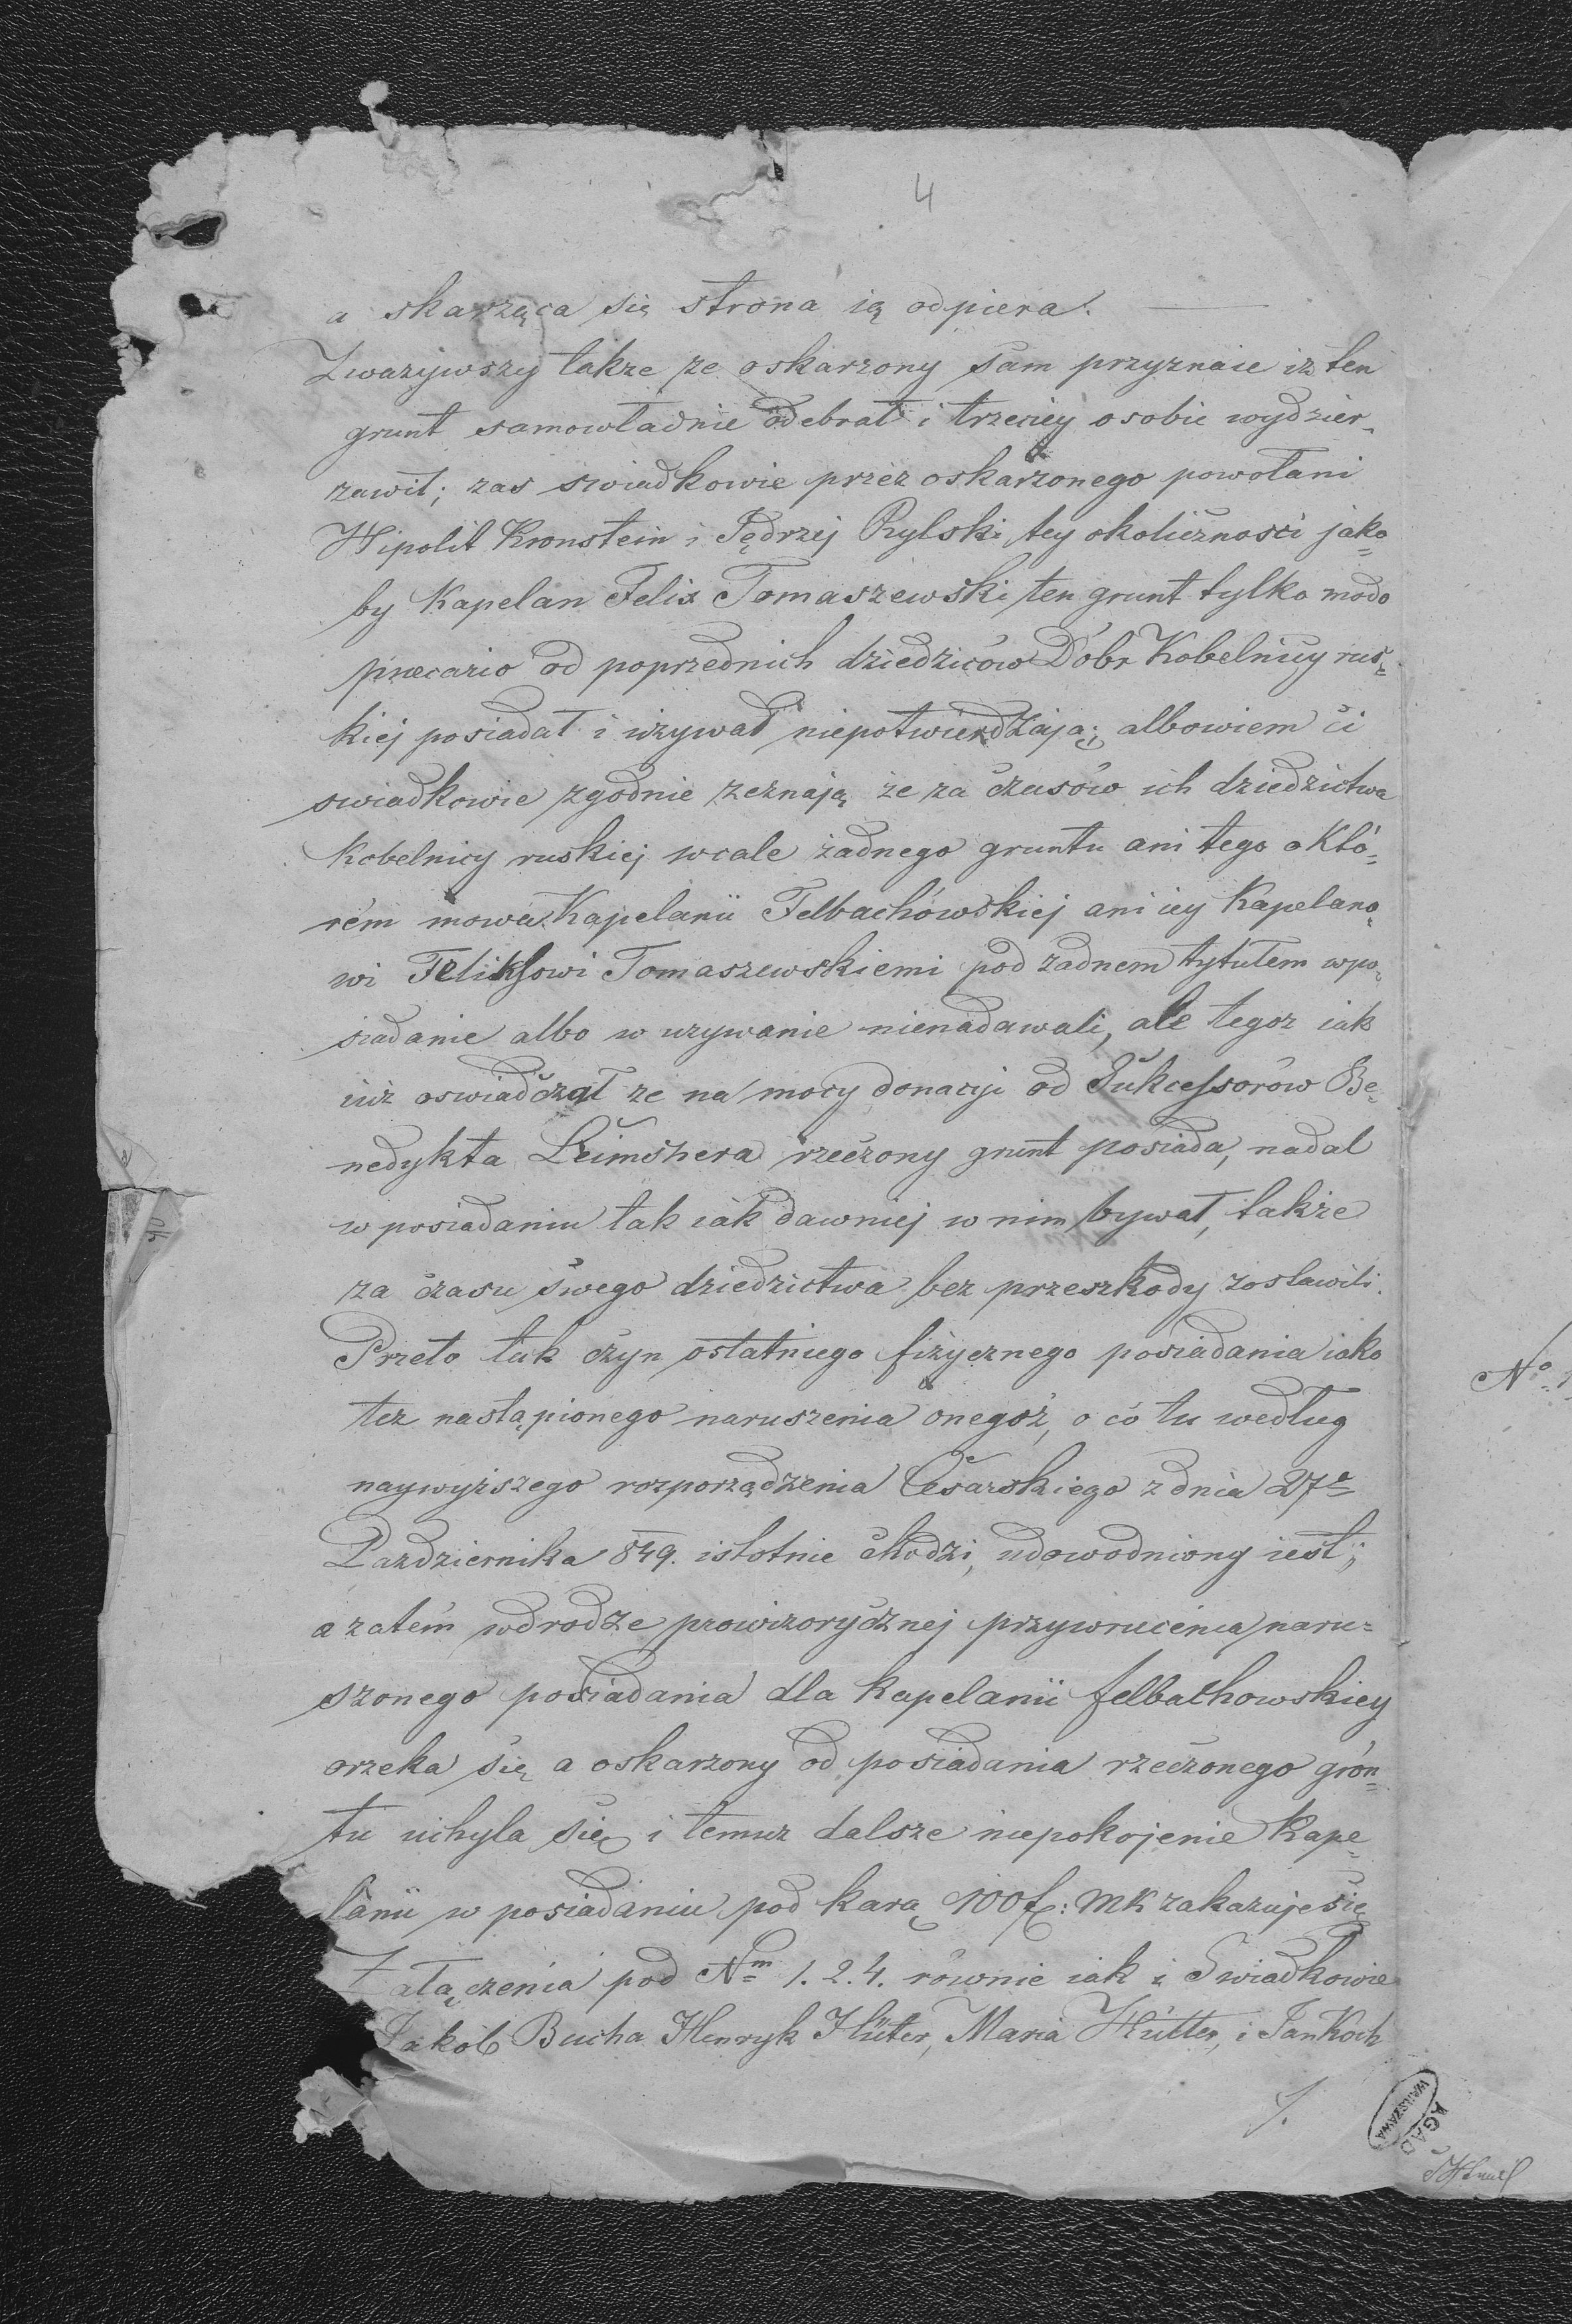 4
a skarząca się strona ią odpiera. —
Zwazywszy takze ze oskarzony sam przyznaie iż ten
grunt samowładnie odebrał i trzeciey osobie wydzier„
zawił; zas swiadkowie przez oskarzonego powołani
Hipolit Kronstein i Jędrzej Rylski, tey okoliczności jako„
by Kapelan Felix Tomaszewski ten grunt tylko modo
precario od poprzednich dziedziców Dóbr Kobelnicy rus„
kiej posiadał i używał niepotwierdzają; albowiem ci
swiadkowie zgodnie zeznają że za czasów ich dziedzictwa
Kobelnicy ruskiej wcale żadnego gruntu ani tego o Któ„
rém mowa Kapelanii Felbachówskiej ani iey Kapelano„
wi Feliksowi Tomaszewskiemi pod zadnem tytułem w po„
siadanie albo w uzywanie nienadawali, ale tegoz iak
iuż oswiadczał ze na mocy donacyi od Sukcessorów Be„
nedykta Leimchera rzeczony grunt posiada, nadal
w posiadaniu tak iak dawniej w nim bywał, także
za czasu swego dziedzictwa bez przeszkody zostawili.
Przeto tak czyn ostatniego fizycznego posiadania iako
tez nastąpionego naruszenia onegoż, o co tu według
naywyższego rozporządzenia Cesarskiego z dnia 27o
Pazdziernika 849. istotnie chodzi, udowodniony iest;
a zatém w drodze prowizorycznej przywrucenia naru„
szonego posiadania dla Kapelanii felbachowskiey
orzeka się a oskarzony od posiadania rzeczonego grón„
tu uchyla się i temuz dalsze niepokojenie Kape„
lanii w posiadaniu pod karą 100 f: MK zakazuje się
Załączenia pod Nm 1. 2. 4. równie iak i Swiadkowie
Jakób Bucha Henryk Hüter, Maria Hütter, i Jan Koch
/.
No
AGAD
WARSZAWA